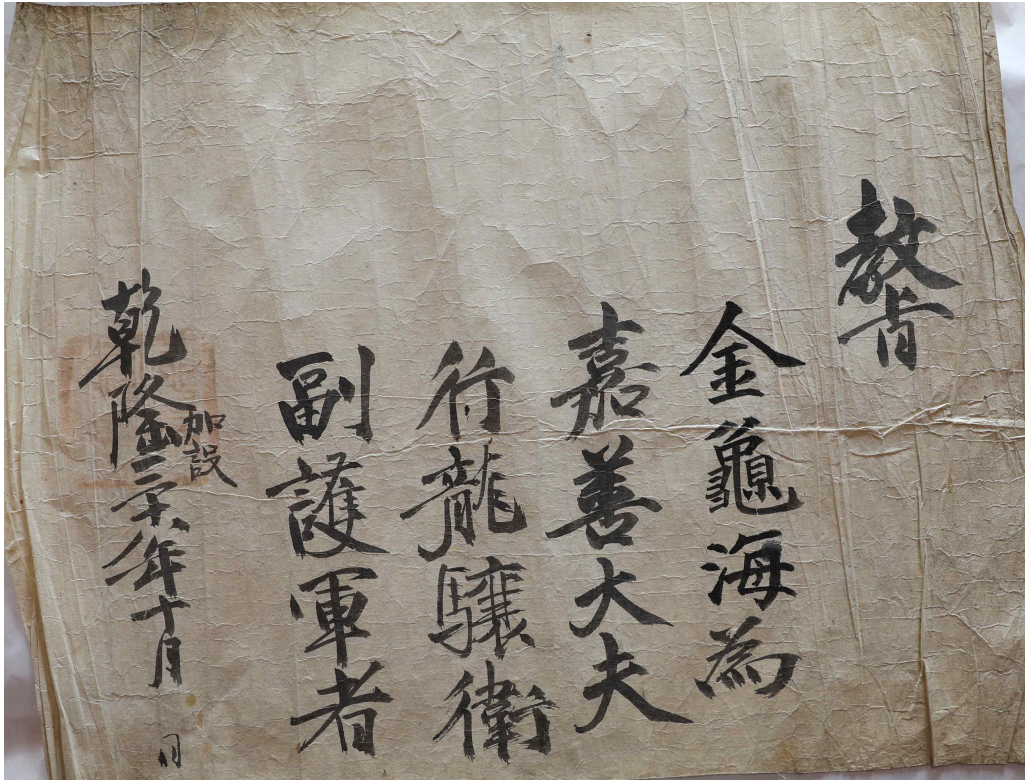 教旨
金龜海為
嘉善大夫
行龍驤衛
副護軍者
乾隆二十六年十月 日
加設